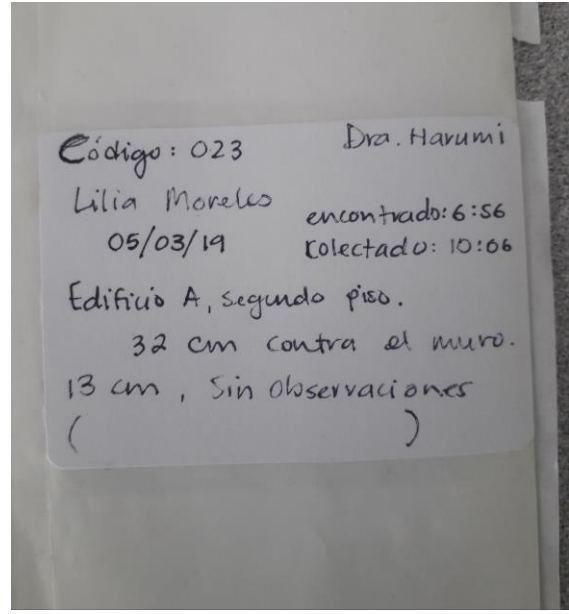 Código: 023
Dra. Harumi
Lilia Morelos
encontrado: 6:56
05/03/19
colectado: 10:06
Edificio A, segundo piso.
32 cm contra el muro.
13 cm, Sin observaciones
( )